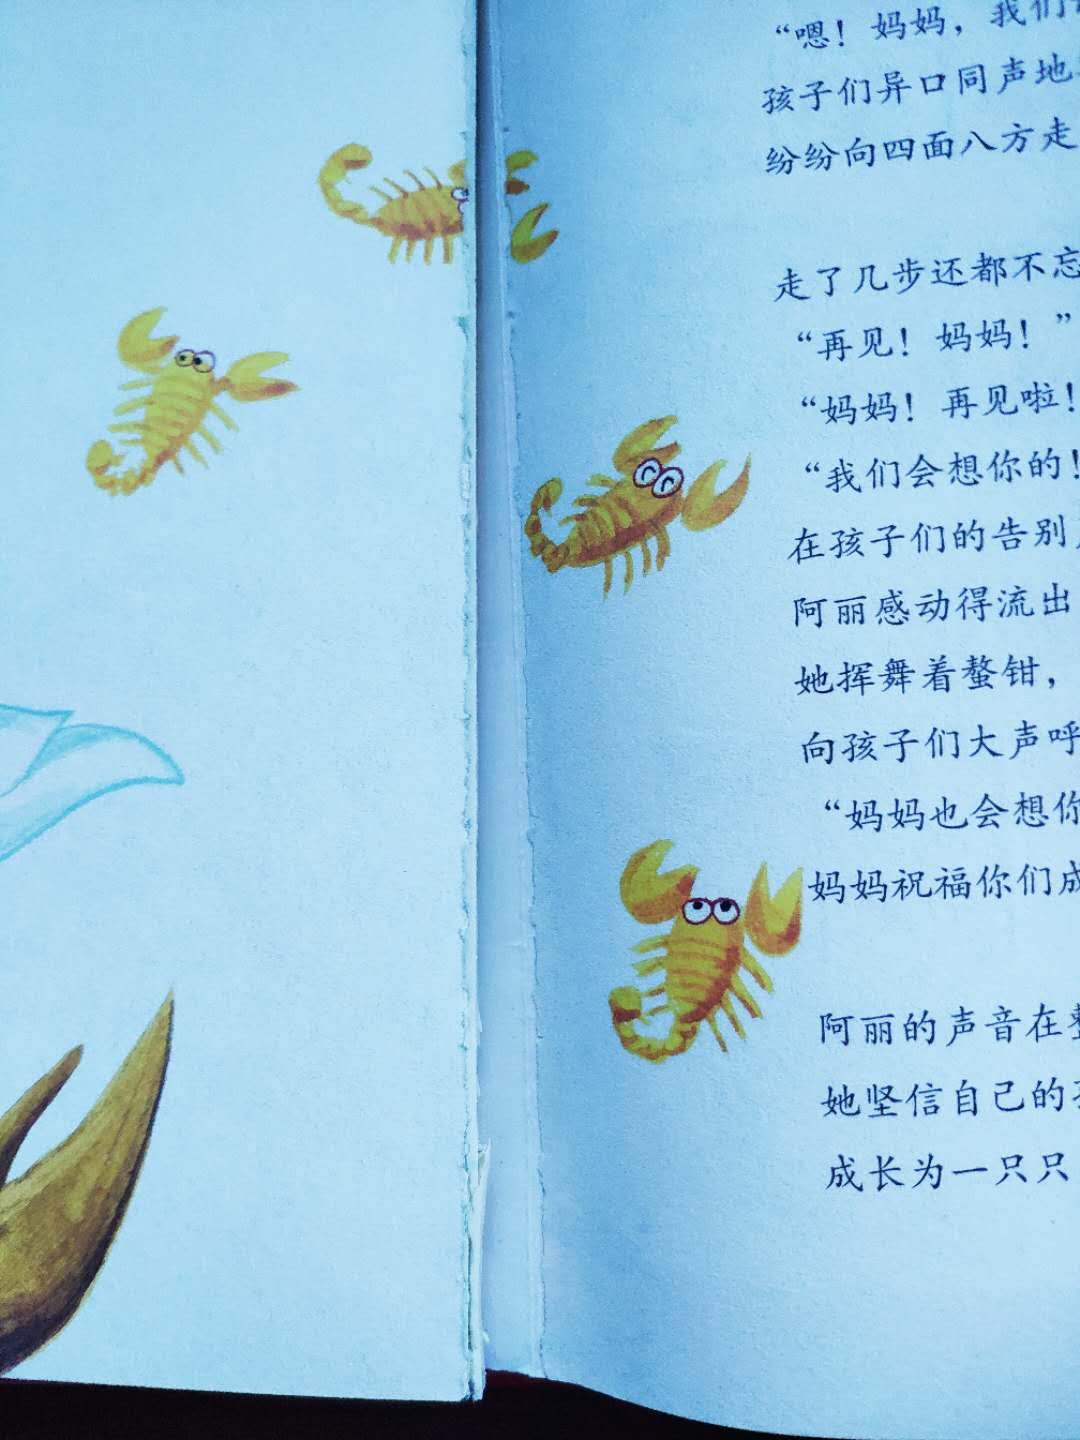 “嗯！妈妈，我们
孩子们异口同声地
纷纷向四面八方走
走了几步还都不忘
“再见！妈妈！”
“妈妈！再见啦！
“我们会想你的！
在孩子们的告别
阿丽感动得流出
她挥舞着螯钳，
向孩子们大声呼
“妈妈也会想你
妈妈祝福你们成
阿丽的声音在整
她坚信自己的孩
成长为一只只